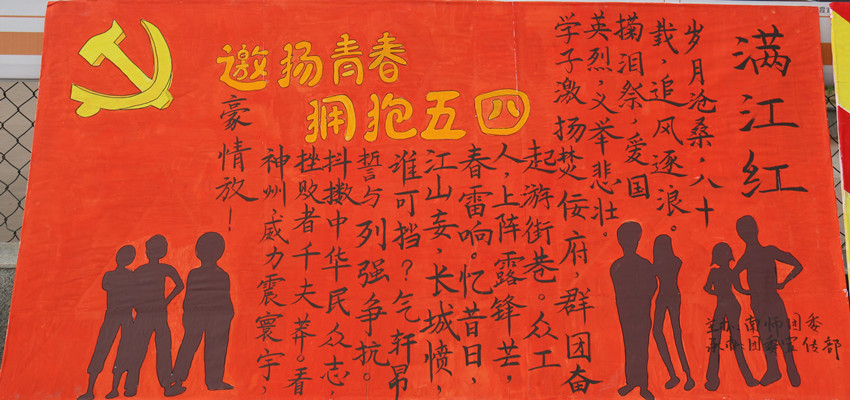 邀扬青春
拥抱五四
满江红
岁月沧桑，八十
载，追风逐浪。
掬泪祭，爱国
英烈，义举悲壮。
学子激扬焚佞府，群团奋
起游街巷。众工
人，上阵露锋芒，
春雷响。忆昔日，
江山妄，长城愤，
谁可挡？气轩昂
誓与列强争抗。
抖擞中华民众志，
挫败者千夫莽。看
神州，威力震寰宇，
豪情放！
主办：南师团委
承办：团委宣传部